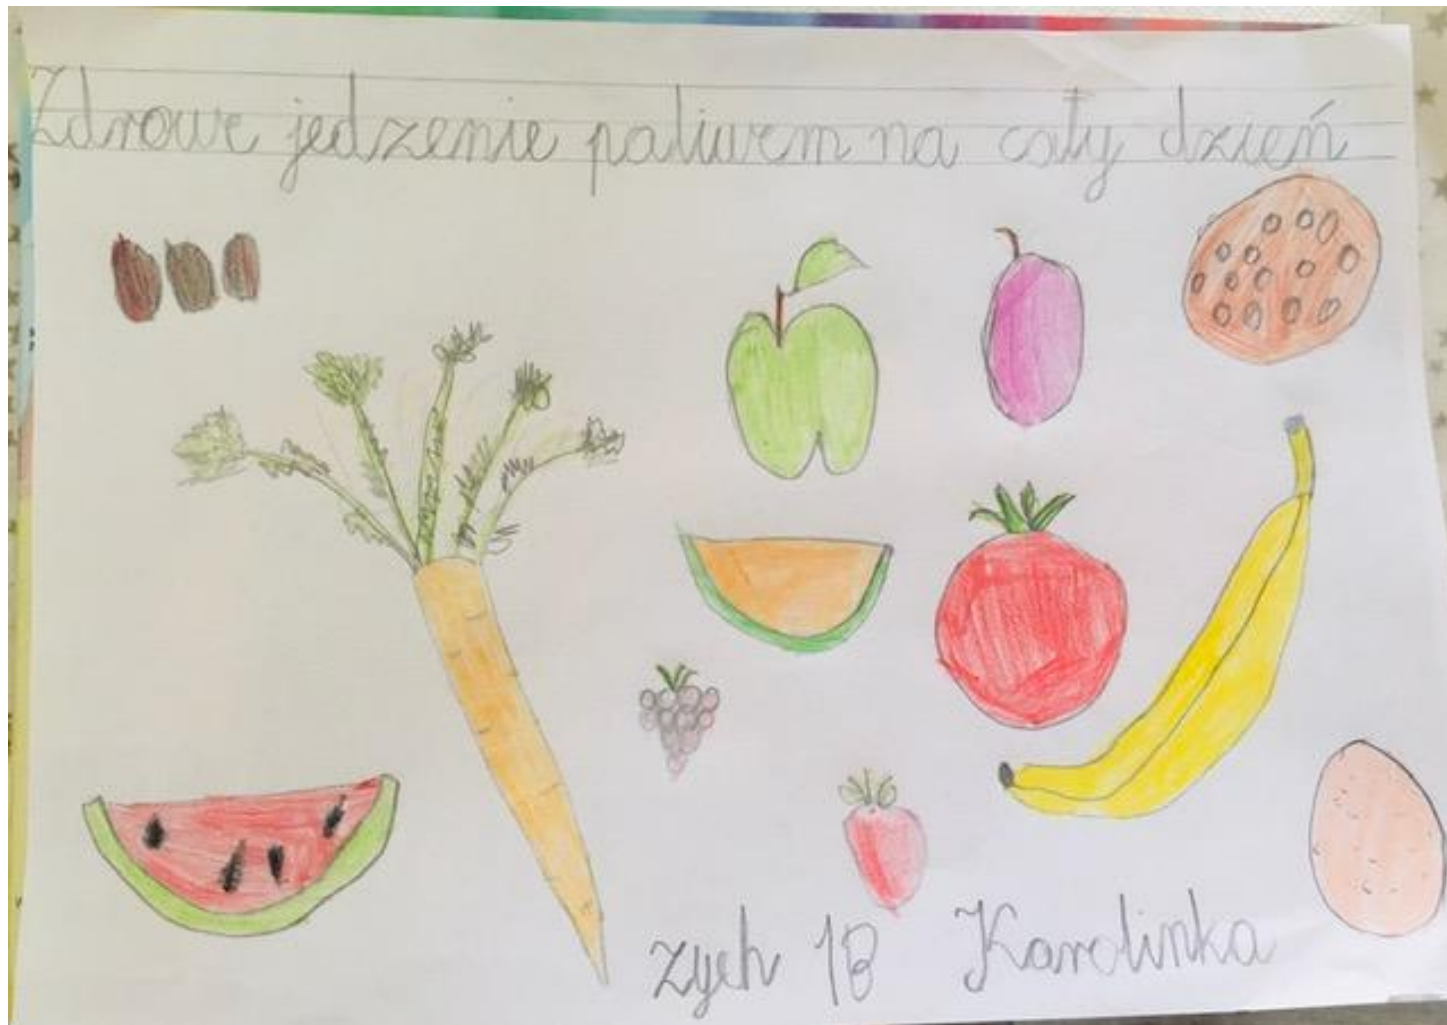 Zdrowe jedzenie paliwem na cały dzień
Zych 1B Karolinka